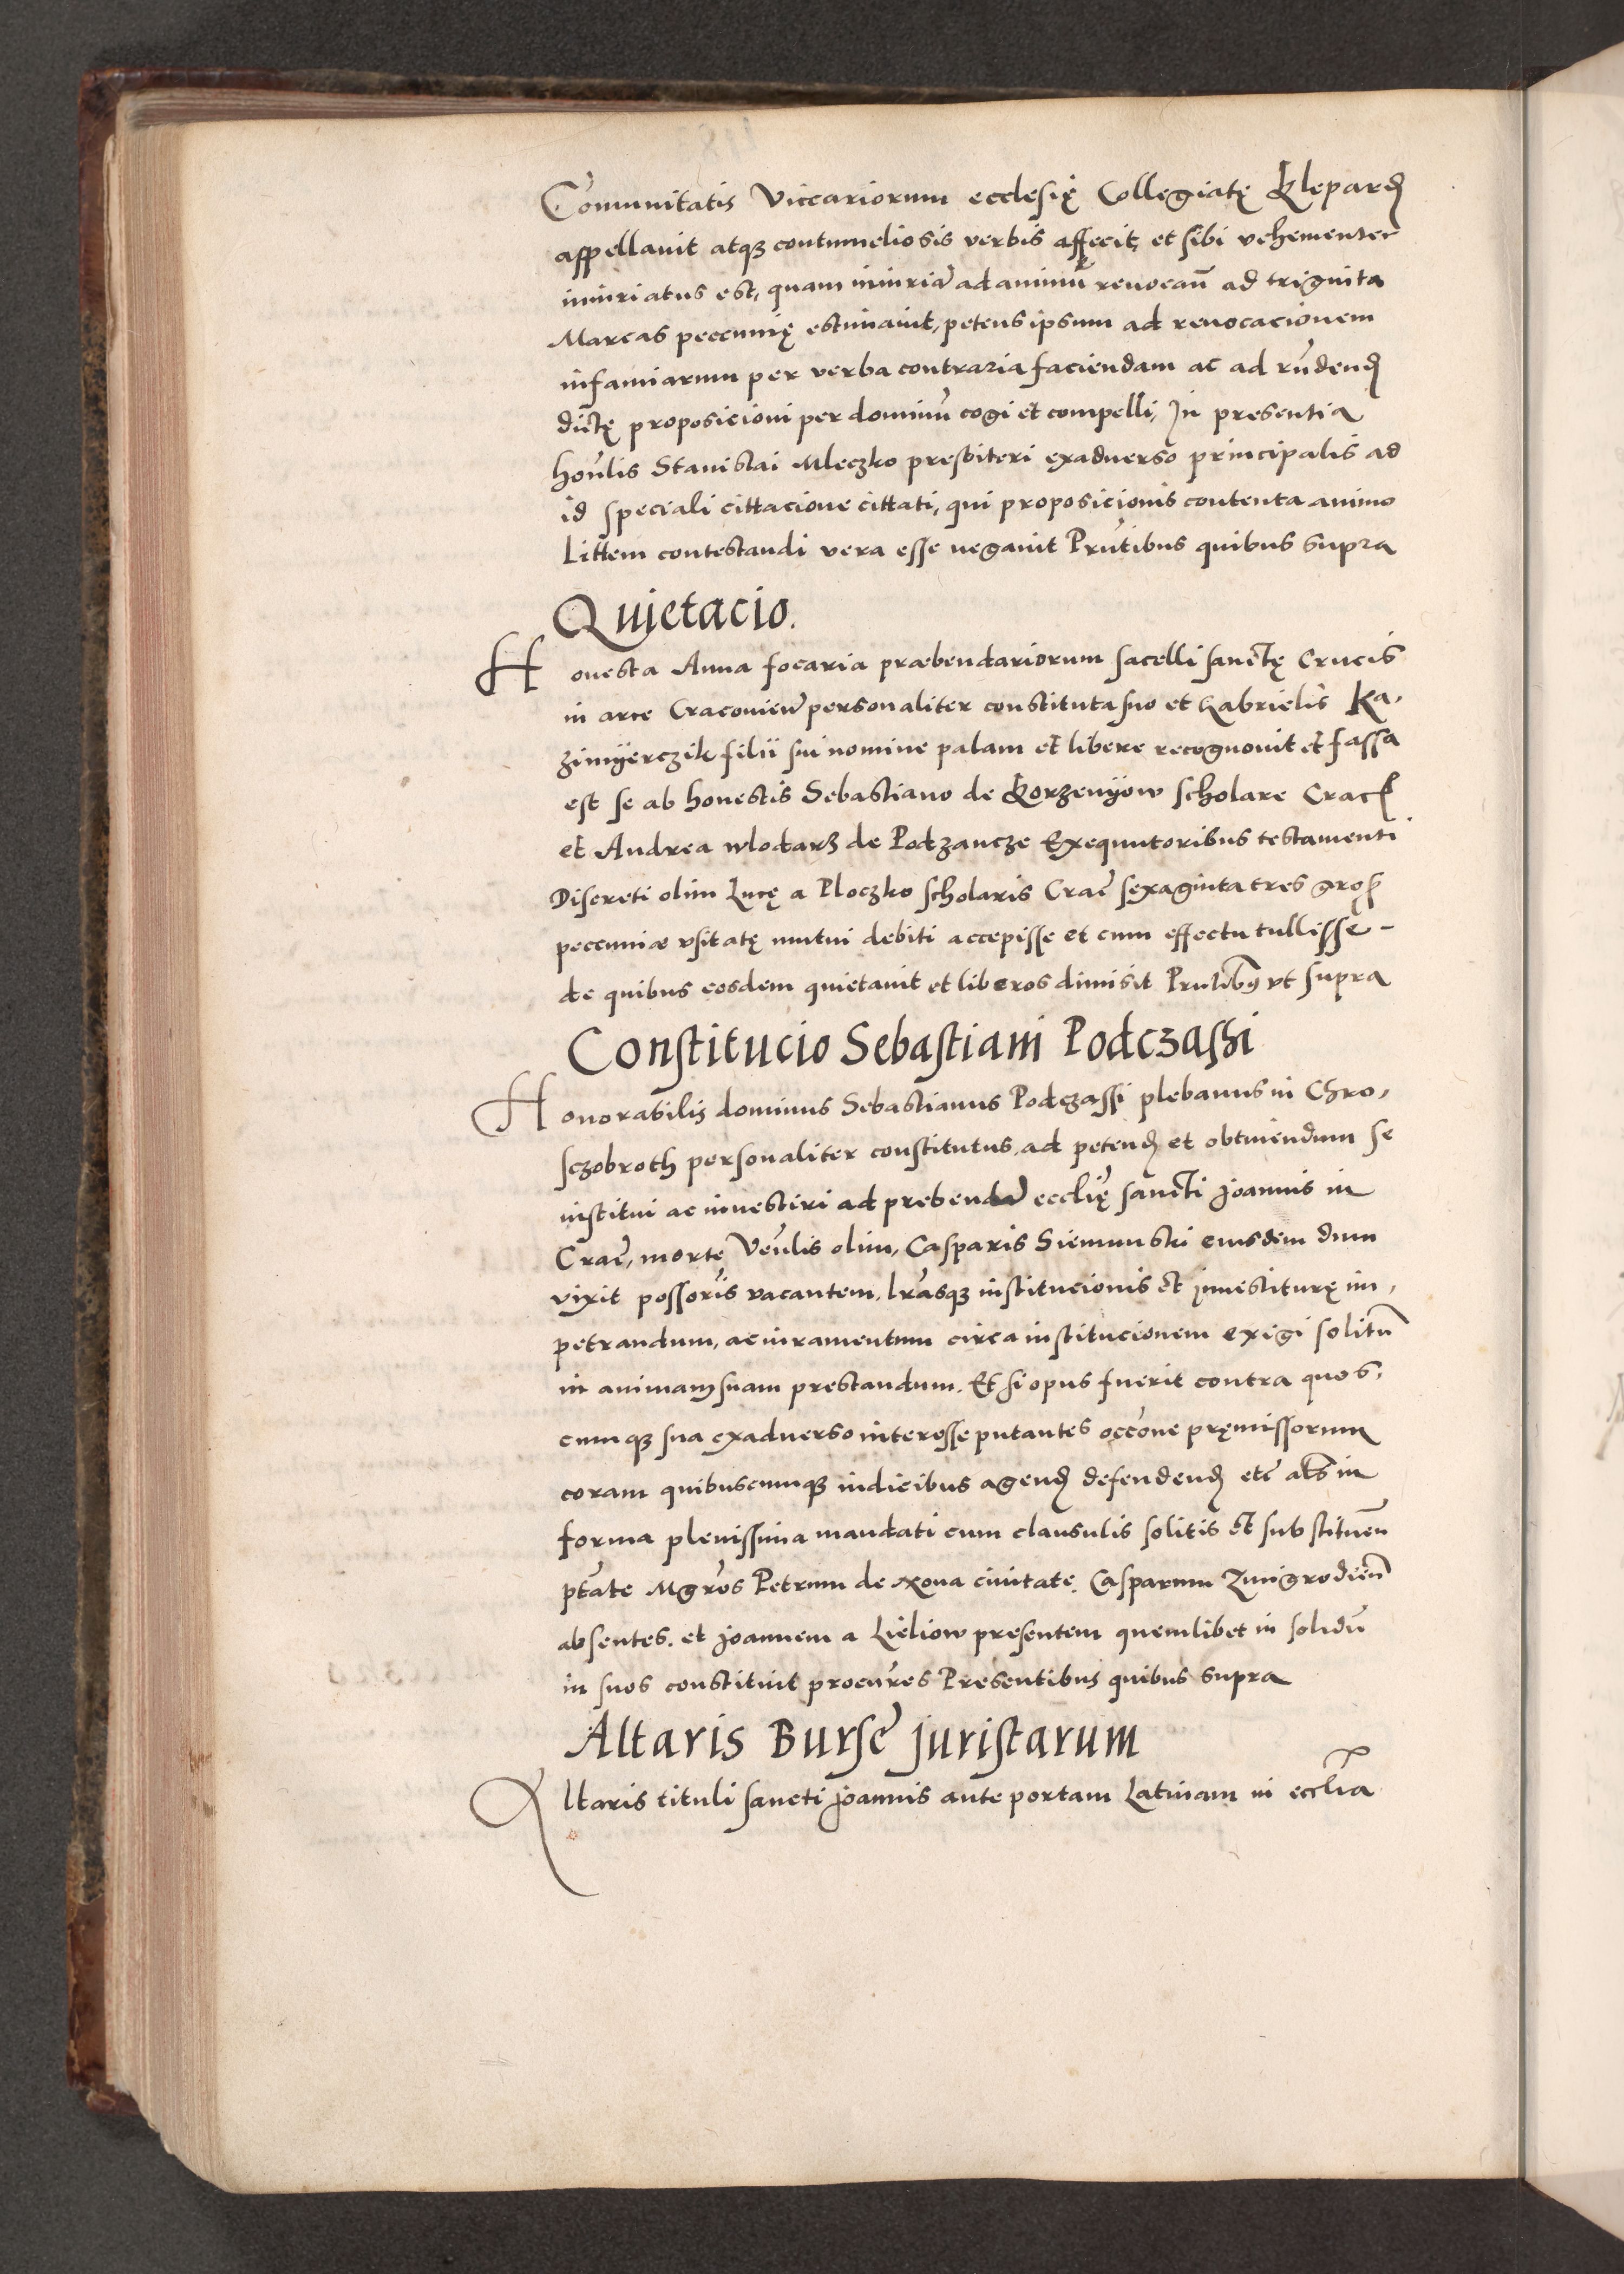 Comunitatis Viccariorum ecclesię Collegiatę Klepard
appellavit atqz contumeliosis verbis affecit, et sibi vehementer
iniuriatus est, quam iniuriā ad animū revocan̄ ad triginta
Marcas peccunię estimavit, petens ipsum ad revocacionem
infamiarum per verba contraria faciendam ac ad rn̄dend
dictę proposicioni per dominū cogi et compelli, In presentia
honl̄is Stanislai Mleczko presbiteri ex adverso principalis ad
id speciali cittacione cittati, qui proposicionis contenta animo
Littem contestandi vera esse negavit Prn̄tibus quibus supra
Quietacio.
Honesta Anna focaria præbendariorum sacelli sanctę Crucis
in arce Cracovien̄ personaliter constituta suo et Gabrielis Ka,
zimÿerczik filii sui nomine palam et libere recognovit et fassa
est se ab honestis Sebastiano de Korzenÿow scholare Crac
et Andrea wlodarz de Podzancze Exequutoribus testamenti
Discreti olim Lucę a Ploczko scholaris Crac̄ sexaginta tres gros
peccuniæ vsitatę mutui debiti accepisse et cum effectu tullisse -
de quibus eosdem quietavit et liberos dimisit Prn̄tibus vt supra
Constitucio Sebastiani Podczaski
Honorabilis dominus Sebastianus Podczassi plebanus in Chro,
sczobroth personaliter constitutus, ad petend et obtinendum se
institui ac investiri ad prebendā eccl̄ię sancti Joannis in
Crac̄, morte Ven̄lis olim, Casparis Siemunski eiusdem dum
vixit possor̄is vacantem, lr̄asqz institucionis et investiturę im,
petrandum, ac iuramentum circa institucionem exigi solitū
in animam suam prestandum. Et si opus fuerit contra quos,
cumqz sua ex adverso interesse putantes occōne pręmissorum
coram quibuscumqz iudicibus agend defendend etc̄ al̄s in
forma plenissima mandati cum clausulis solitis et substituen̄
ptāte Mgr̄os Petrum de Nova civitate, Casparum Zmigrodien̄
absentes. et Joannem a Lieliow presentem quemlibet in solidū
in suos constituit procur̄es Presentibus quibus supra
Altaris Bursę Juristarum
Altaris tituli sancti Joannis ante portam Latinam in eccl̄ia